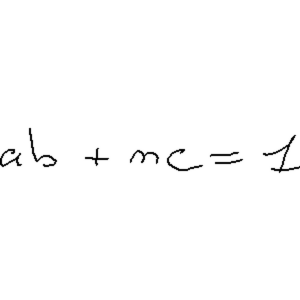 ab + nc = 1